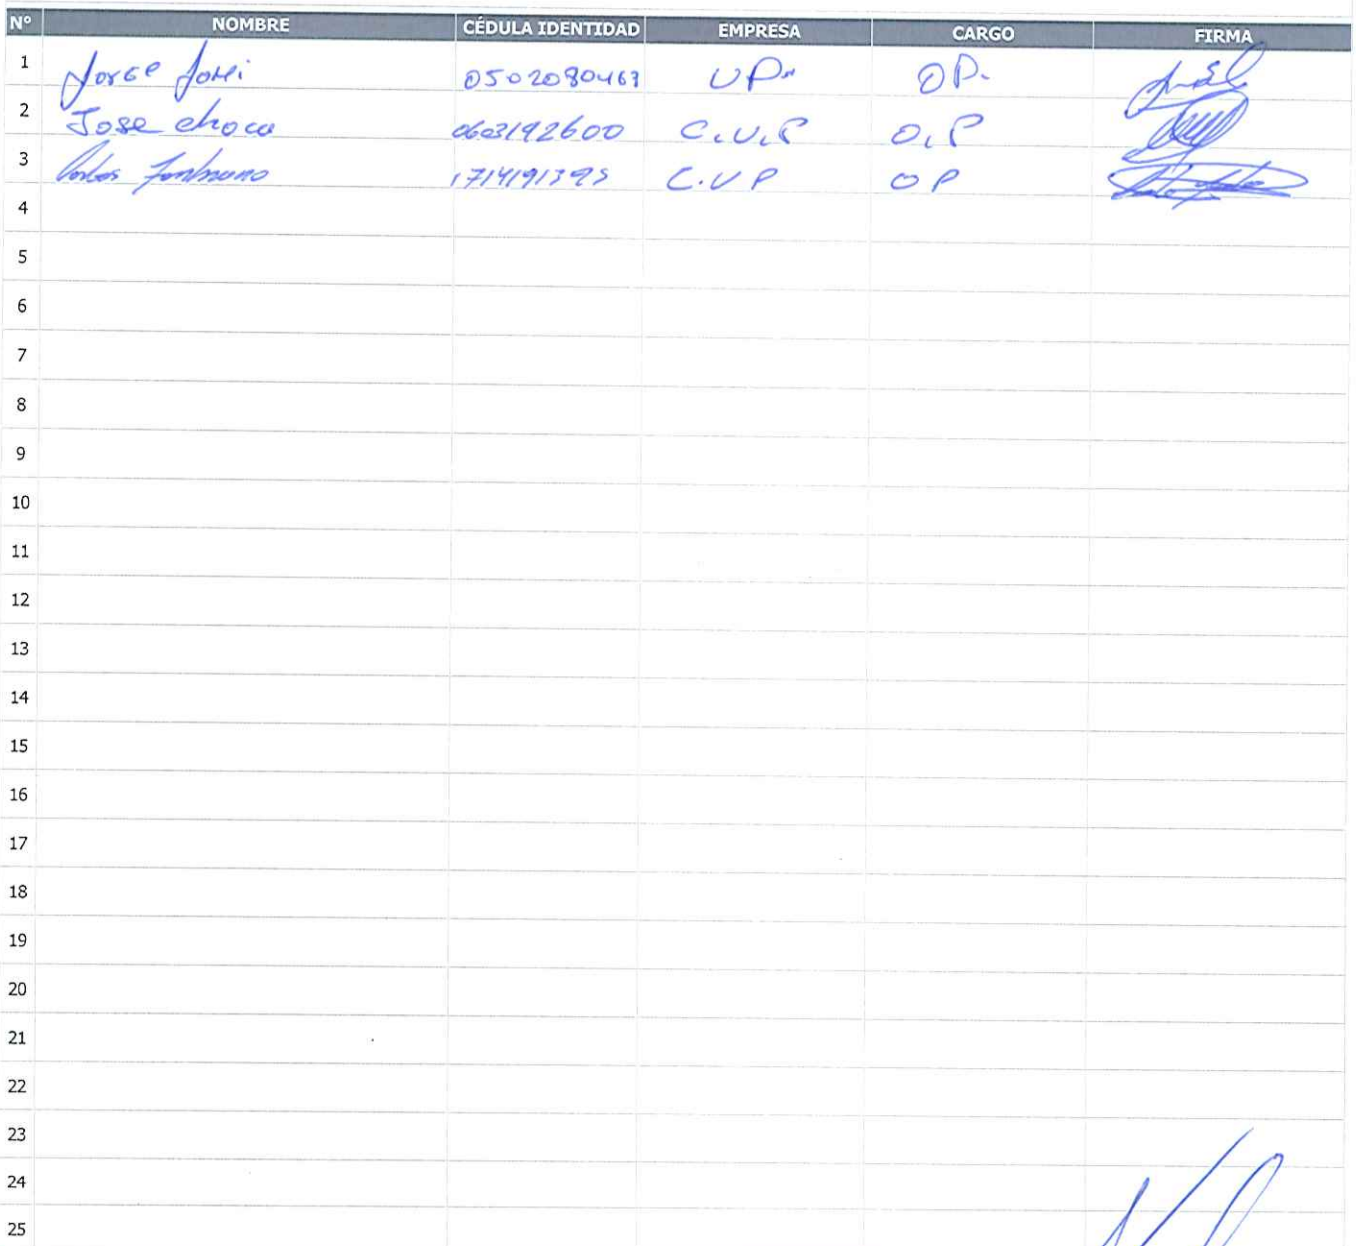 N° NOMBRE CÉDULA IDENTIDAD EMPRESA CARGO FIRMA
1 Jorge 0502080463 UP. OP.
2 Jose choca 0603192600 C.U.P O.P
3 1714191395 C.UP OP
4
5
6
7
8
9
10
11
12
13
14
15
16
17
18
19
20
21
22
23
24
25